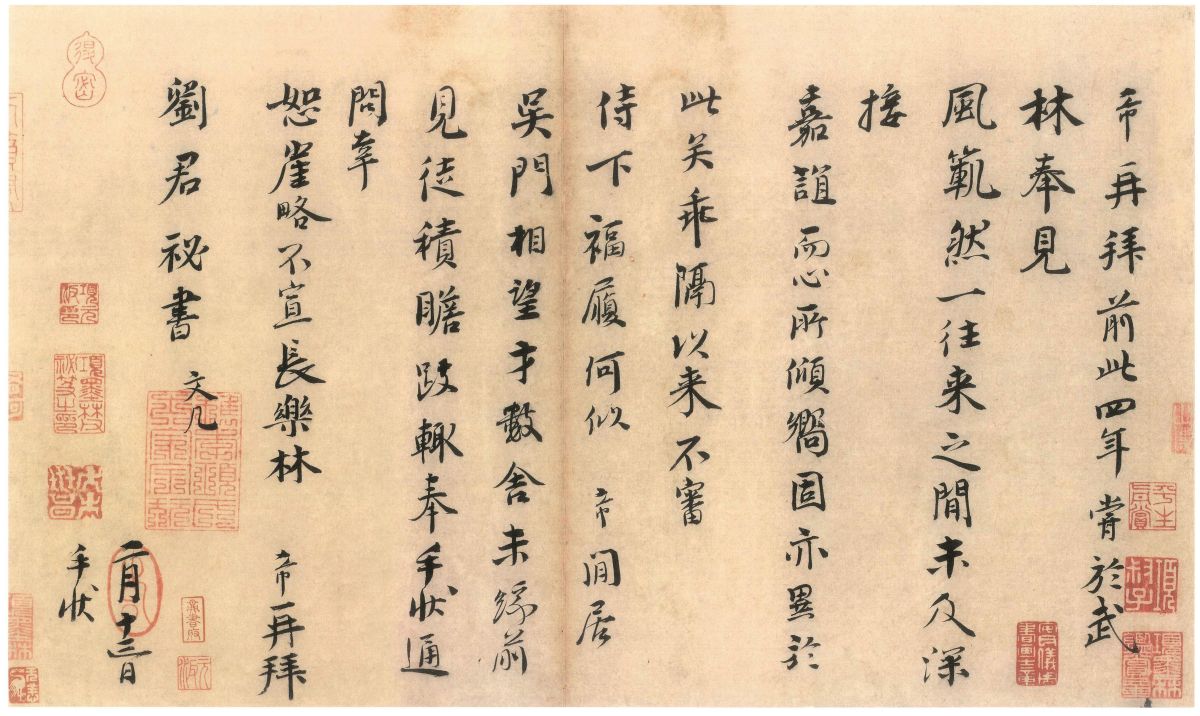 帀再拜前此四年嘗於武
林奉見
風範然一往来之間未及深
接
嘉誼而心所傾嚮固亦異於
此矣乖隔以来不審
侍下福履何似帀閒居
吳門相望才數舍未緣前
見徒積瞻跂輒奉手狀通
問幸
恕崖略不宣長樂林帀再拜
劉君祕書文几
二月十三日
手狀